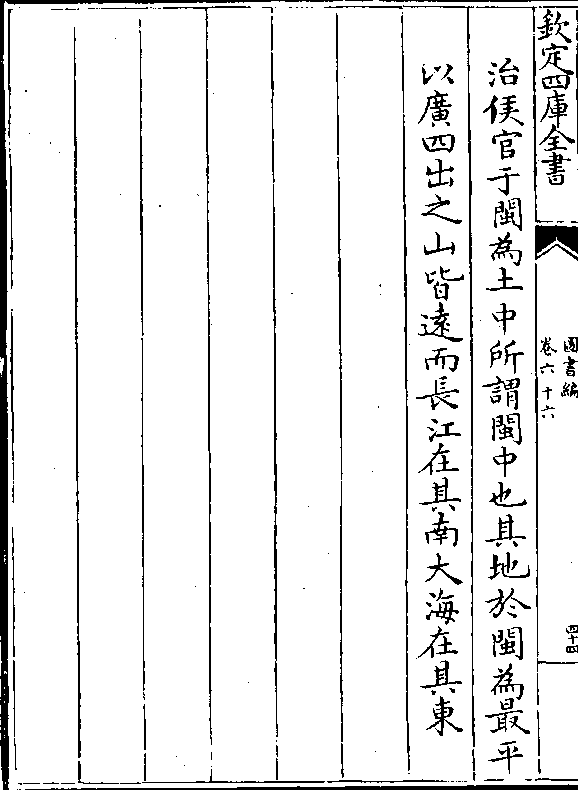 欽定四庫全書
圖書編
卷六十六
四十四
治侯官于閩為土中所謂閩中也其地於閩為最平
以廣四出之山皆遠而長江在其南大海在其東